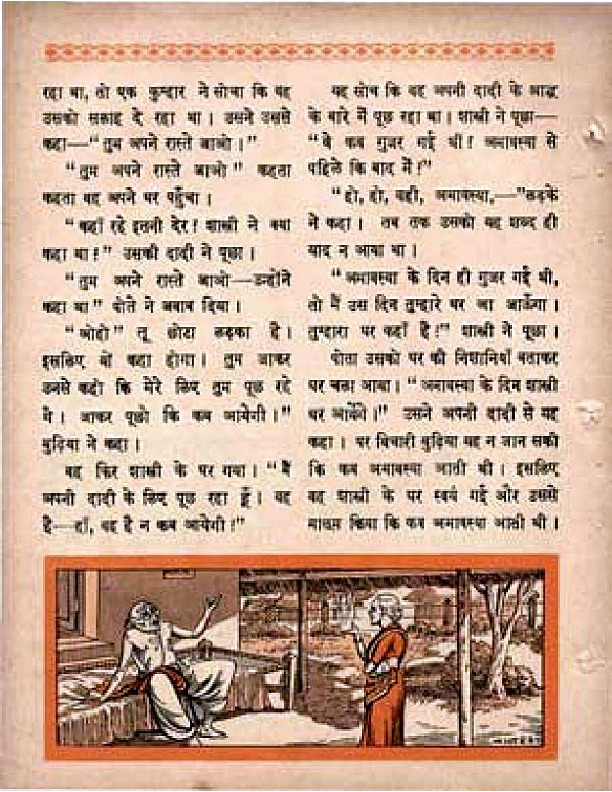 रहा था, तो एक कुम्हार ने सोचा कि वह
उसको सलाह दे रहा था । उसने उससे
कहा—“ तुम अपने रास्ते जाओ ।”
“ तुम अपने रास्ते जाओ ” कहता
कहता वह अपने घर पहुँचा ।
“ कहाँ रहे इतनी देर ! शास्त्री ने क्या
कहा था !” उसकी दादी ने पूछा ।
“ तुम अपने रास्ते जाओ—उन्होंने
कहा था ” पोते ने जवाब दिया ।
“ ओहो ” तू छोटा लड़का है ।
इसलिए यों कहा होगा । तुम जाकर
उनसे कहो कि मेरे लिए तुम पूछ रहे
थे । जाकर पूछो कि कब आयेगी ।”
बुढ़िया ने कहा ।
वह फिर शास्त्री के घर गया । “ मैं
अपनी दादी के लिए पूछ रहा हूँ । वह
है—हाँ, वह है न कब आयेगी !”
यह सोच कि वह अपनी दादी के श्राद्ध
के बारे में पूछ रहा था । शास्त्री ने पूछा—
“ वे कब गुज़र गई थीं ! अमावस्या से
पहिले कि बाद में !”
“ हो, हो, वही, अमावस्या,—” लड़के
ने कहा । तब तक उसको वह शब्द ही
याद न आया था ।
“ अमावस्या के दिन ही गुज़र गई थी,
तो मैं उस दिन तुम्हारे घर आ जाऊँगा ।
तुम्हारा घर कहाँ है !” शास्त्री ने पूछा ।
पोता उसको घर की निशानियाँ बताकर
घर चला आया । “ अमावस्या के दिन शास्त्री
घर आयेंगे ।” उसने अपनी दादी से यह
कहा । पर बिचारी बुढ़िया यह न जान सकी
कि कब अमावस्या आती थी । इसलिए
वह शास्त्री के घर स्वयं गई और उससे
मालूम किया कि कब अमावस्या आती थी ।